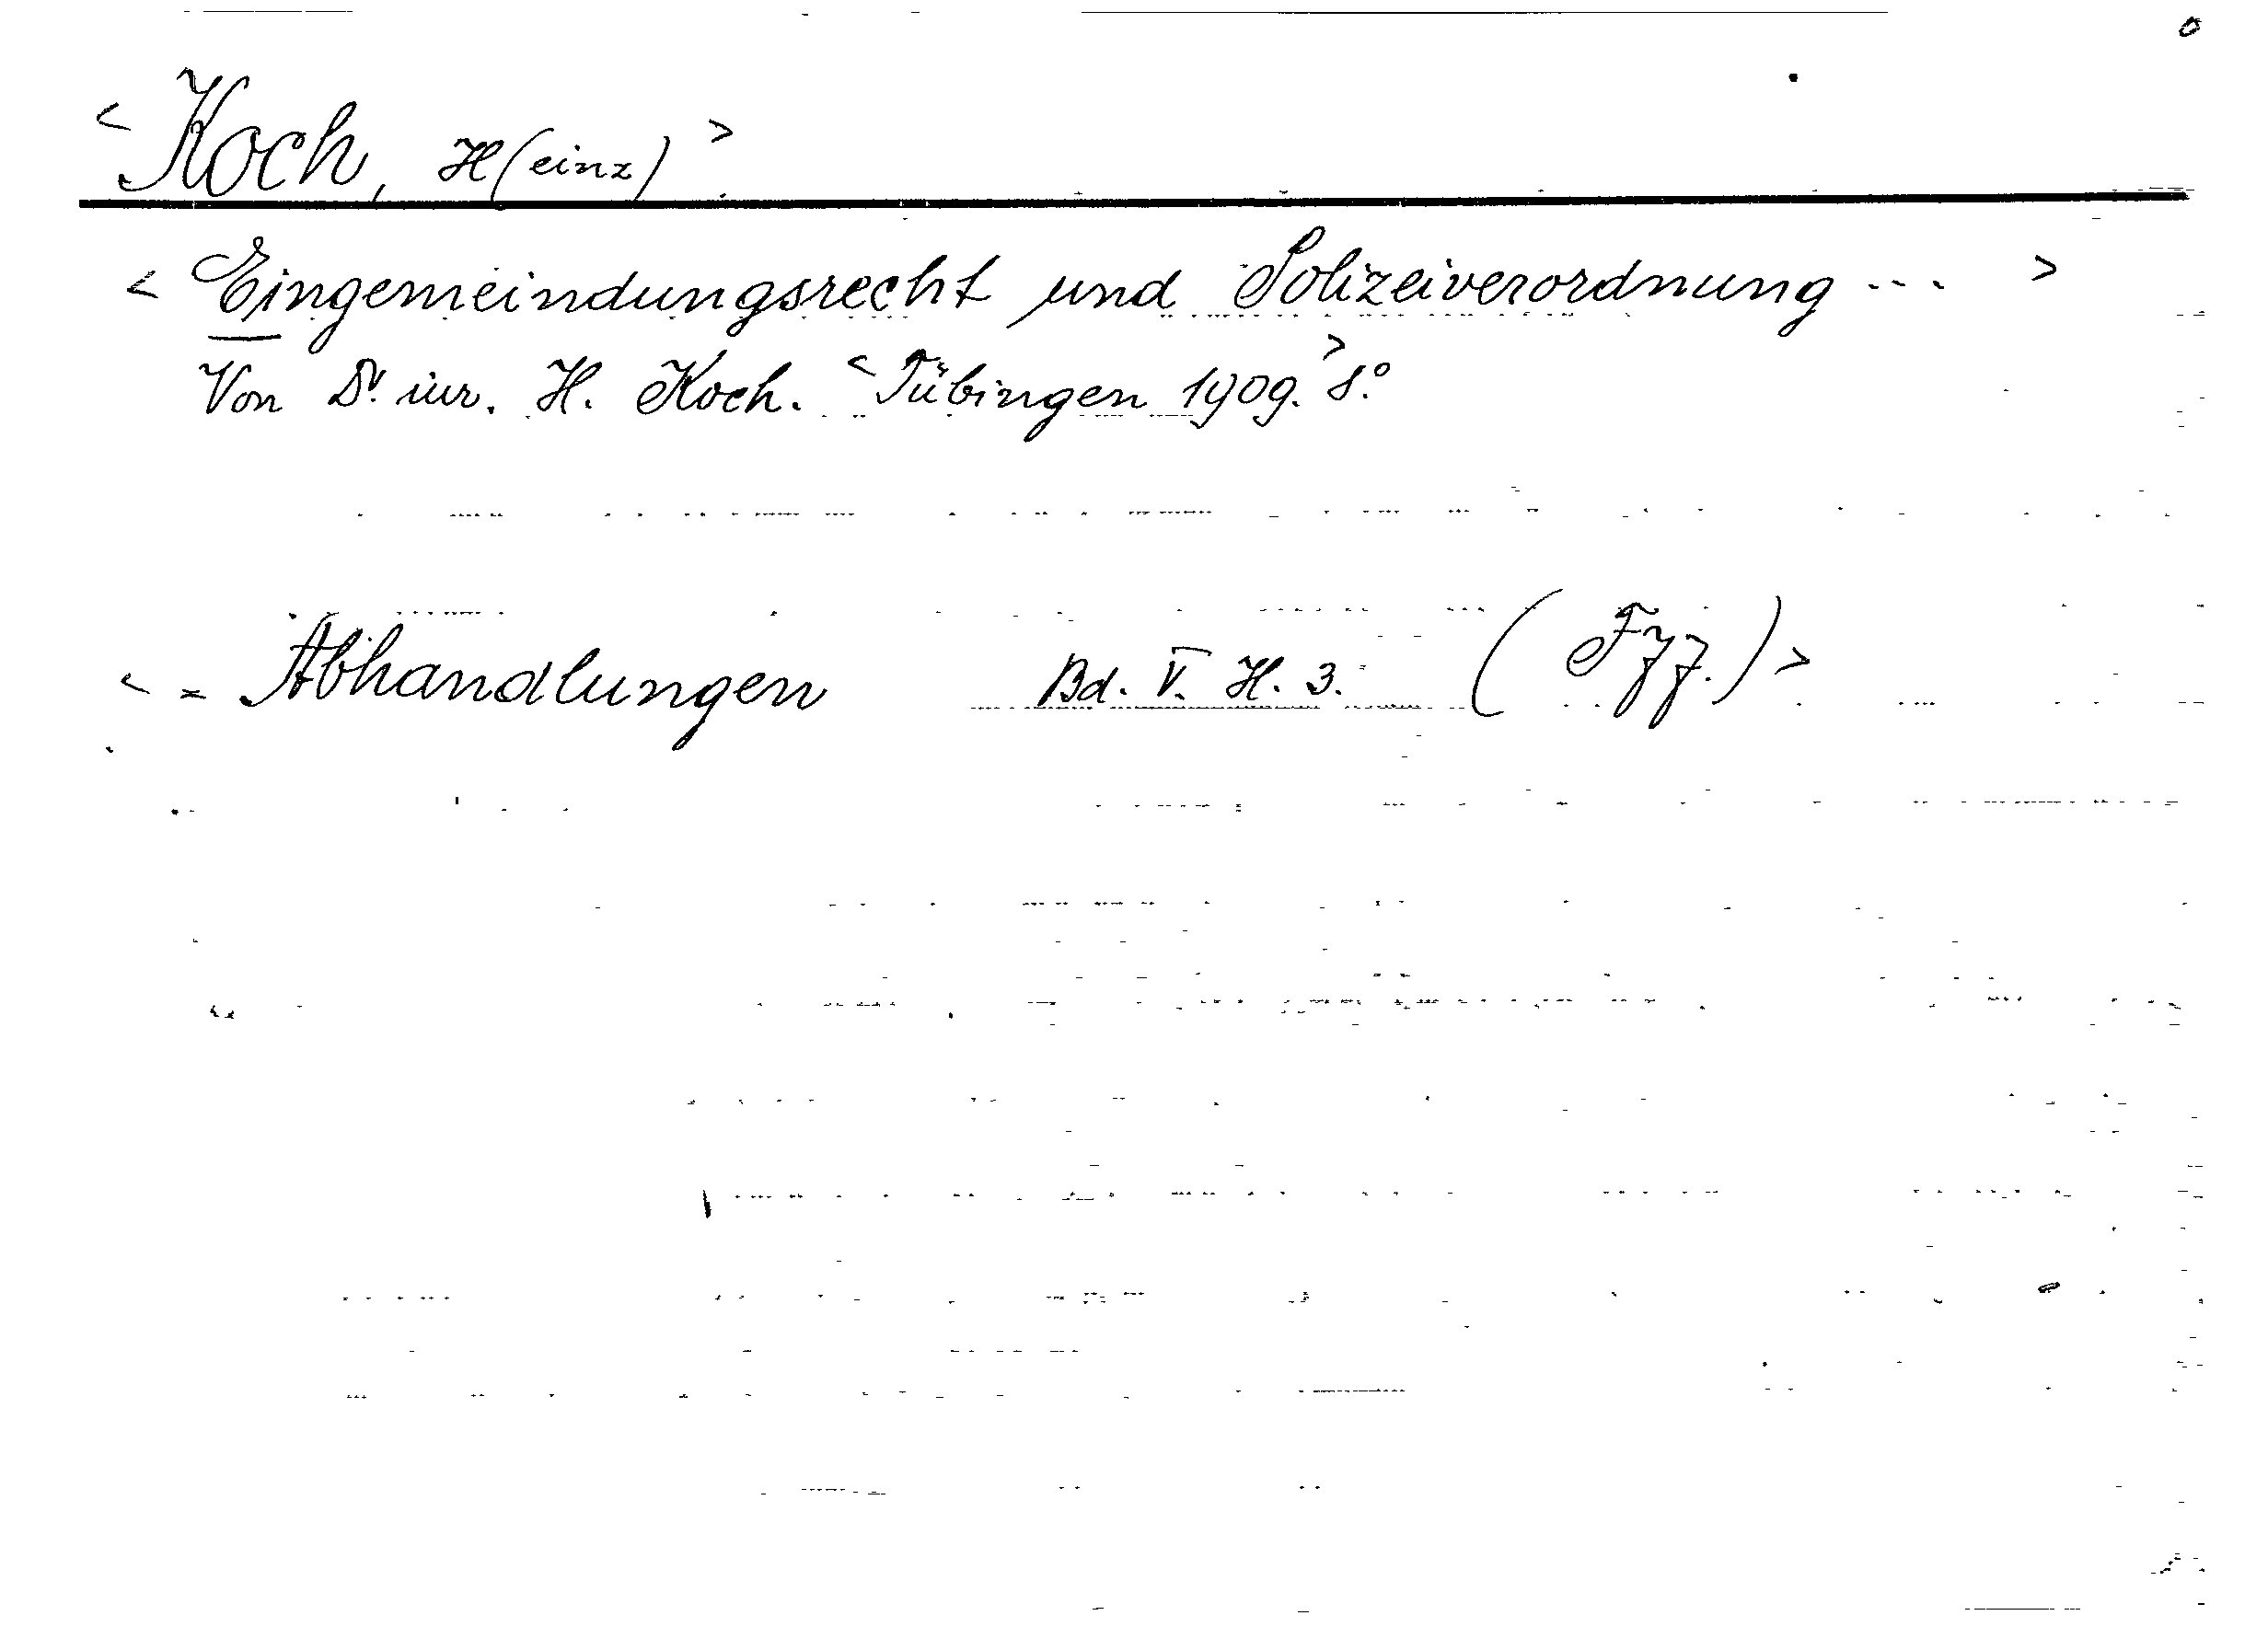 < Koch, H(einz) >
< Eingemeindungsrecht und Polizeiverordnung ... >
Von Dr. iur. H. Koch. < Tübingen 1909. > 8.º
< = Abhandlungen Bd. V. H. 3. ( ) >